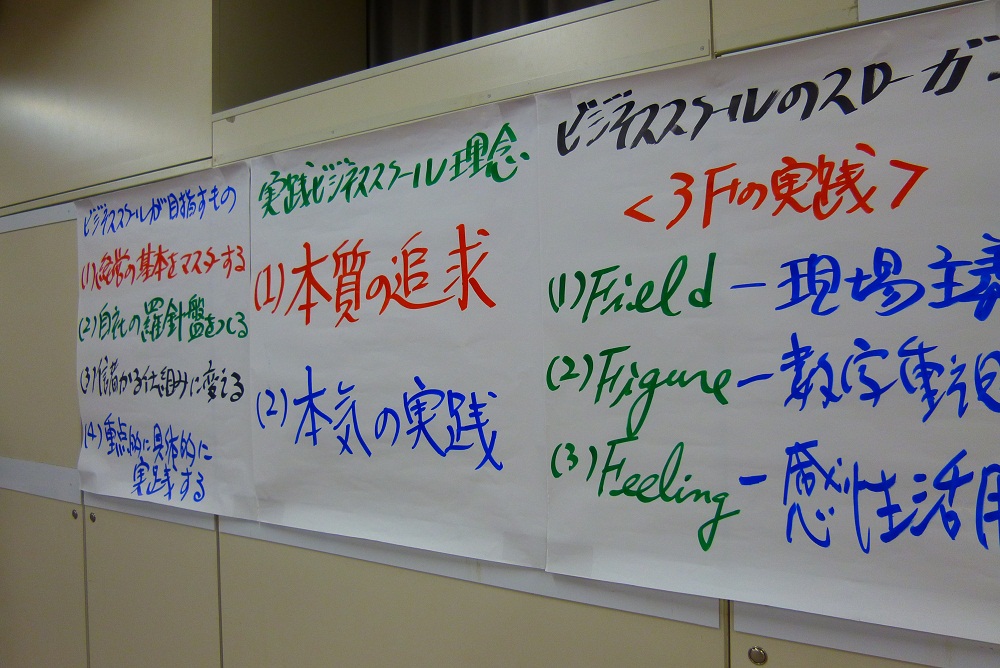 ビジネススクールが目指すもの
(1)経営の基本をマスターする
(2)自社の羅針盤をつくる
(3)儲かる仕組みに変える
(4)重点的に具体的に
実践する
実践ビジネススクール理念
(1)本質の追求
(2)本気の実践
ビジネススクールのスローガ
<3Fの実践>
(1)Field－現場主義
(2)Figure－数字重視
(3)Feeling－感性活用